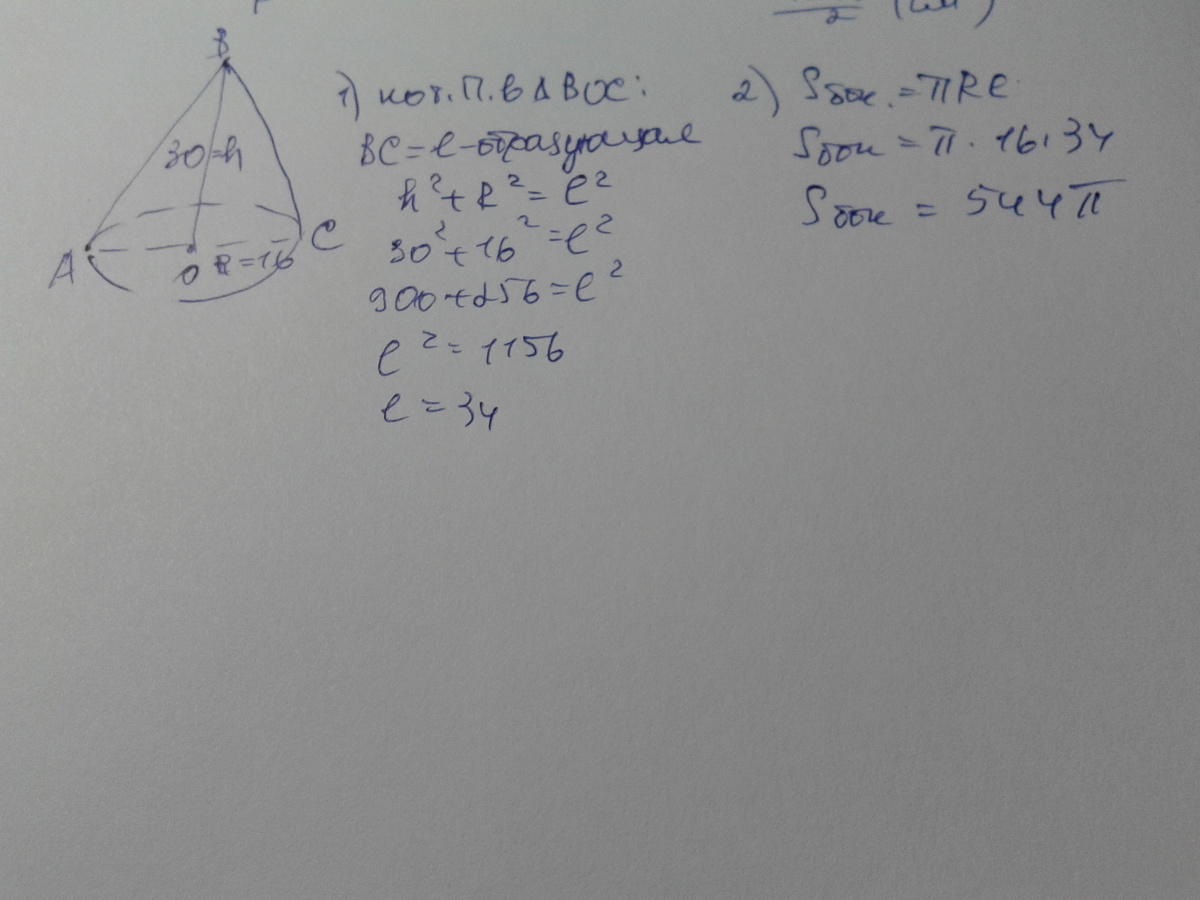 2 (см
B
30=h
A
O R=16
C
1) по т.П. в Δ BOC:
BC = l - образующая
h² + R² = l²
30² + 16² = l²
900 + 256 = l²
l² = 1156
l = 34
2) Sбок. = πRl
Sбок = π · 16 · 34
Sбок = 544π